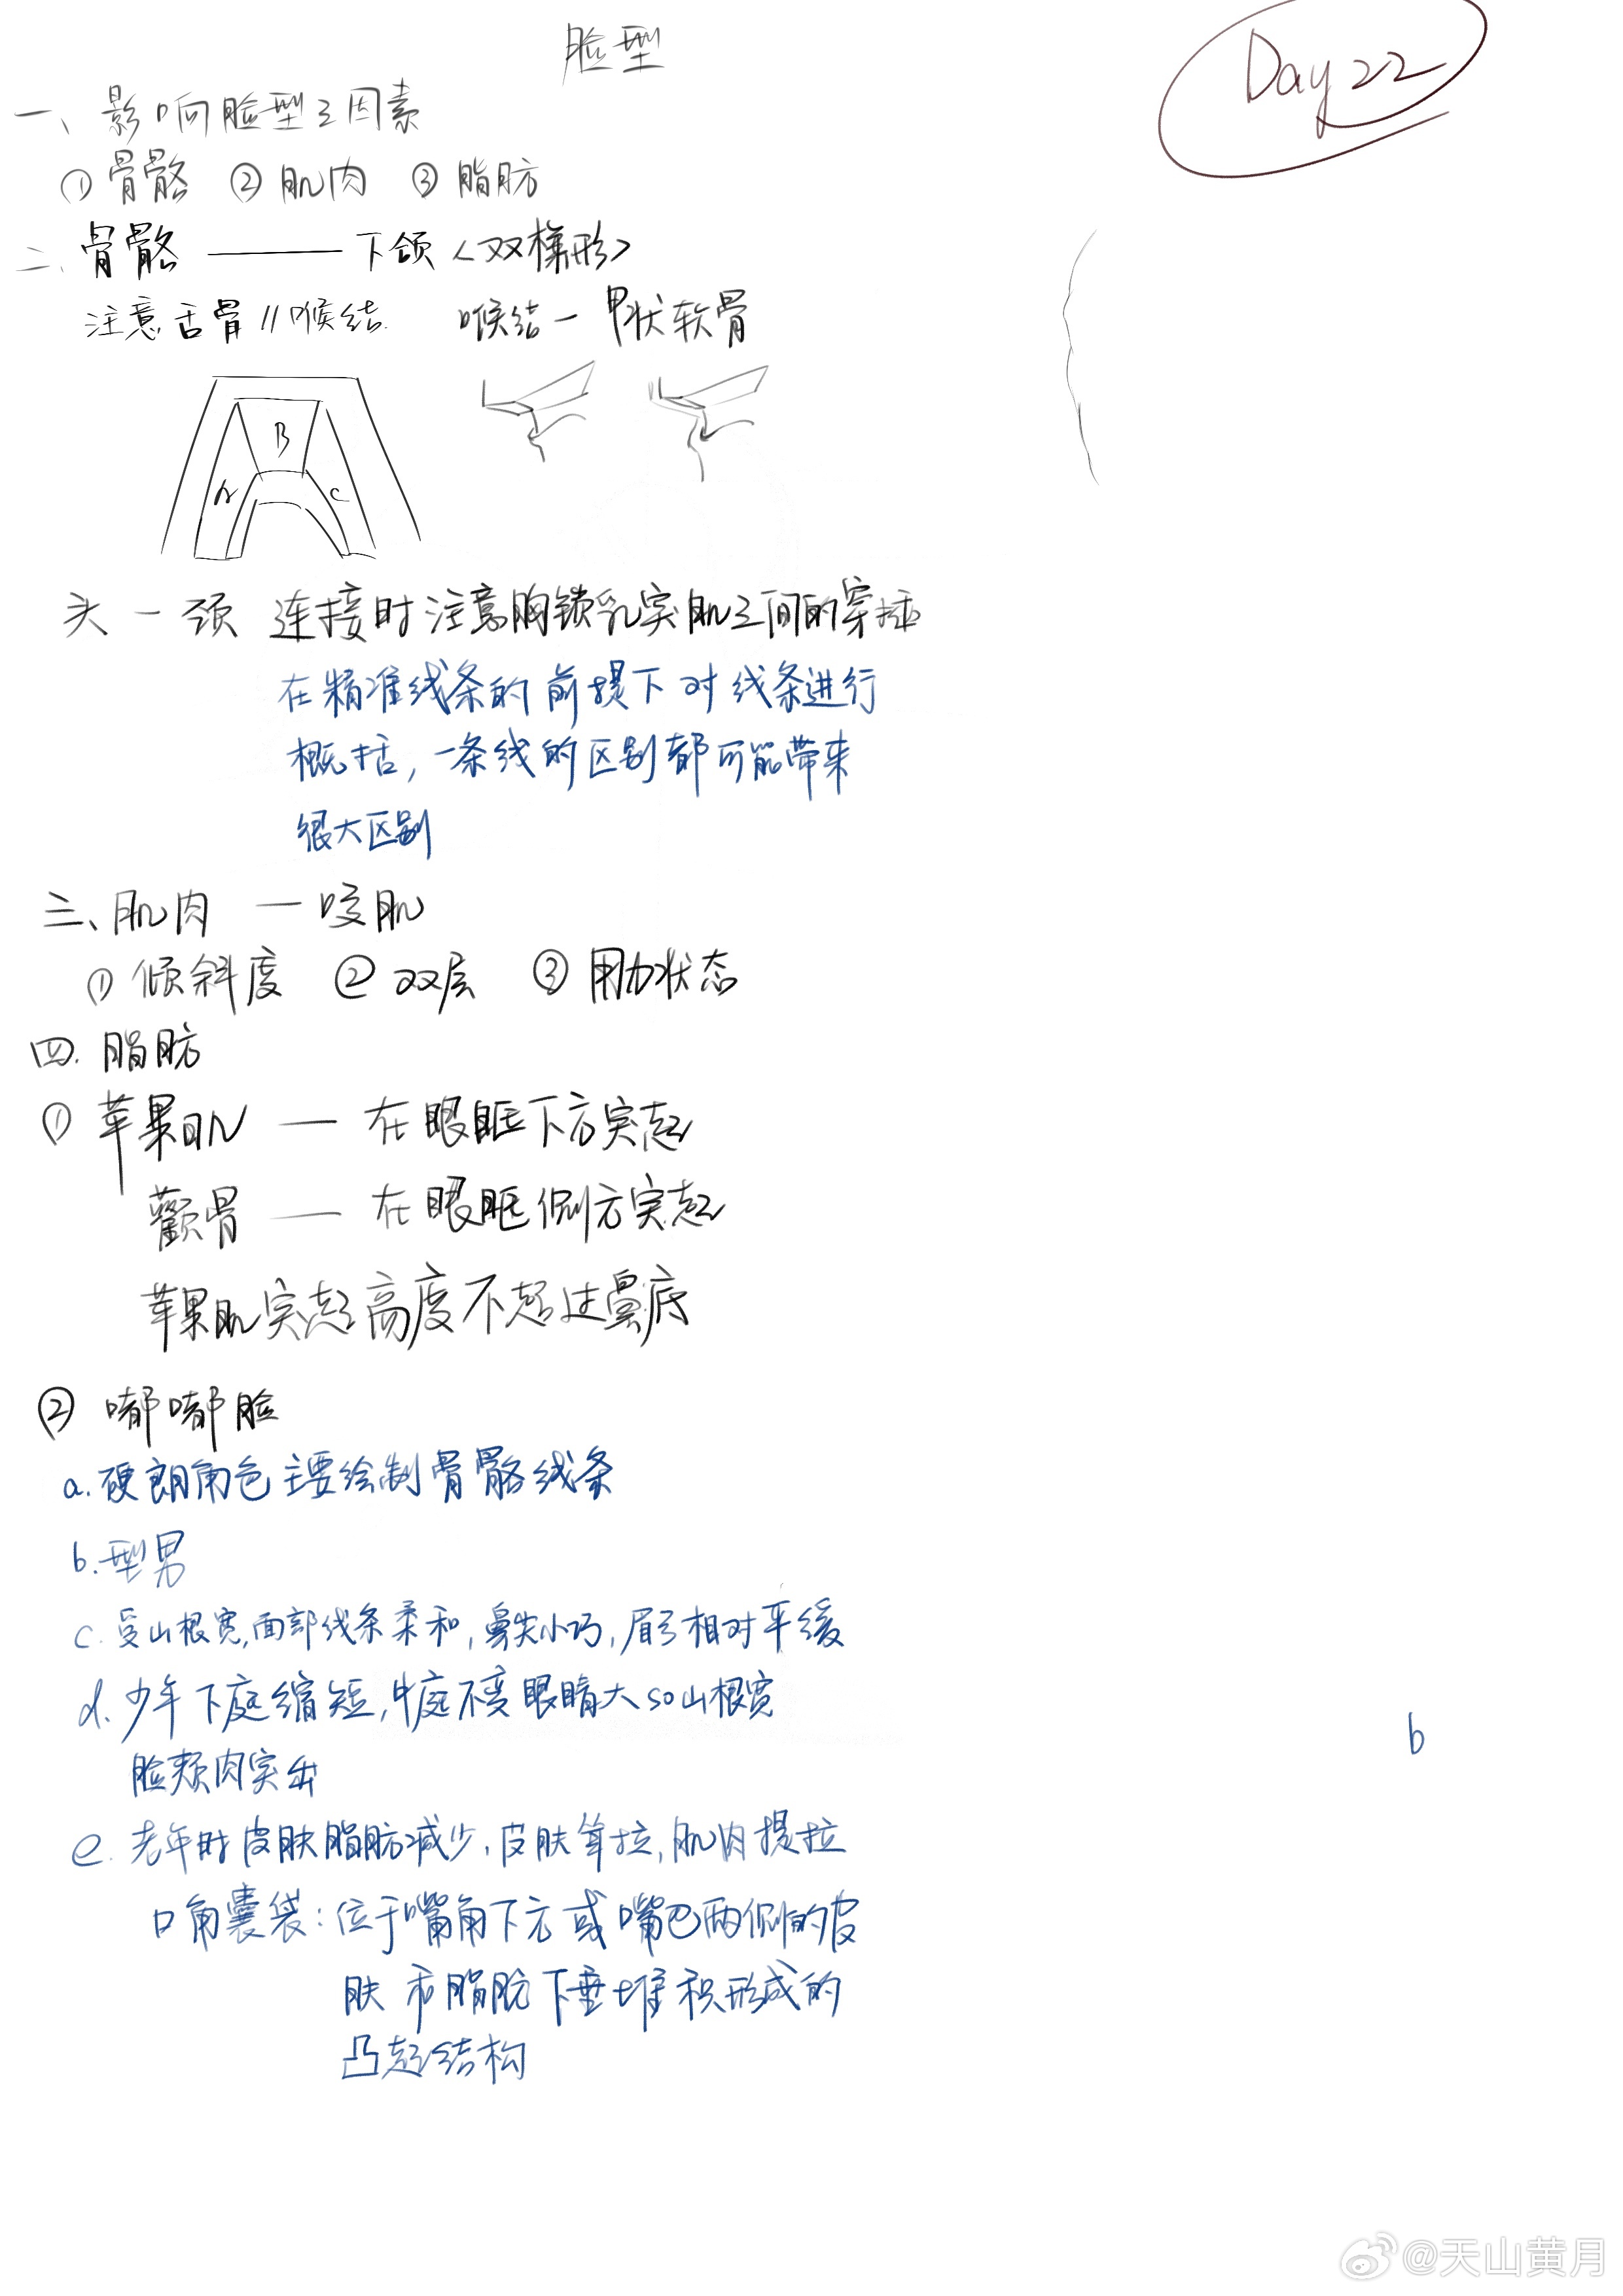 脸型
Day 22
一、影响脸型之因素
① 骨骼 ② 肌肉 ③ 脂肪
二、骨骼 —— 下颌<双梯形>
注意舌骨//喉结 喉结一甲状软骨
B
A C
头一颈 连接时注意胸锁乳突肌之间的穿插
在精准线条的前提下对线条进行
概括,一条线的区别都可能带来
很大区别
三、肌肉 — 咬肌
① 倾斜度 ② 双层 ③ 用力状态
四. 脂肪
① 苹果肌 — 在眼眶下方突起
颧骨 — 在眼眶侧方突起
苹果肌突起高度不超过鼻底
② 嘟嘟脸
a. 硬朗角色主要绘制骨骼线条
b. 型男
c. 山根宽,面部线条柔和,鼻头小巧,眉弓相对平缓
d. 少年下庭缩短,中庭不变眼睛大so山根宽
脸颊肉突出
b
e. 老年时皮肤脂肪减少,皮肤耷拉,肌肉提拉
口角囊袋:位于嘴角下方或嘴巴两侧的皮
肤和脂肪下垂堆积形成的
凸起结构
@天山黄月